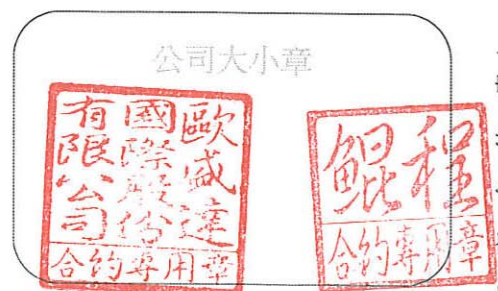 公司大小章
歐盛達
國際股份
有限公司
合約專用章
程
鯤
合約專用章